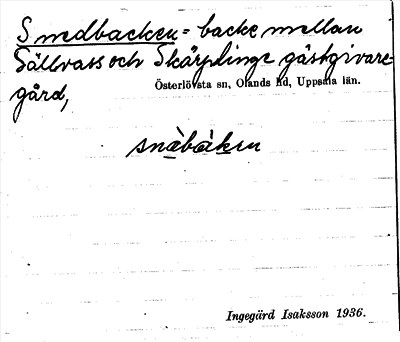 Smedbacken = backe mellan
Sällvass och Skärplinge gästgivare-
gård,
Österlövsta sn, Olands hd, Uppsala län.
snàbàken
Ingegärd Isaksson 1936.